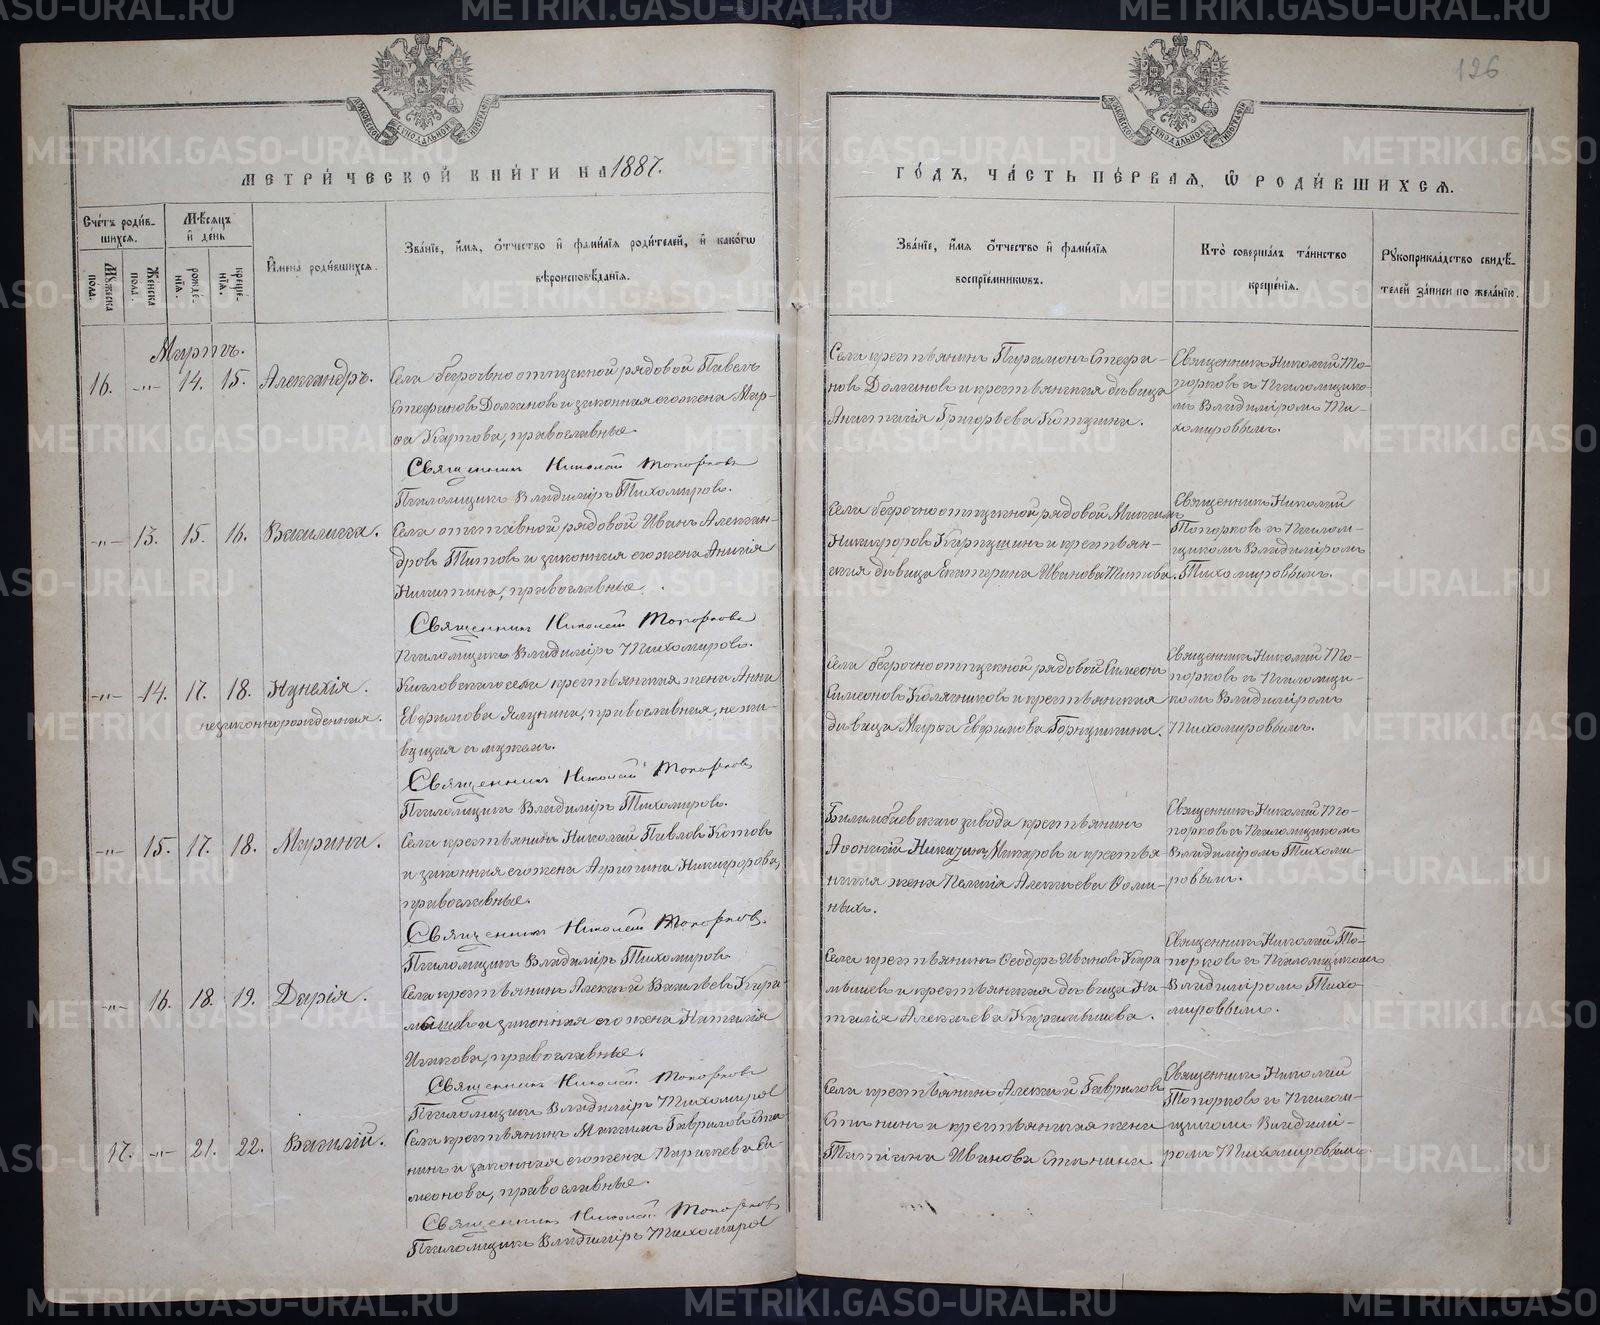 126
МЕТРИ́ЧЕСКОЙ КНИ́ГИ НА 1887.
ГО́ДЪ, ЧА́СТЬ ПЕ́РВАЯ, Ѡ РОДИ́ВШИХСЯ.
Сче́тъ роди́в-
шихся.
Мѣ́сяцъ
и҆ де́нь
Му́жеска
пола.
Же́нска
пола.
рожде́-
нїя.
креще́-
нїя.
И҆мена̀ роди́вшихся.
Зва́нїе, и҆́мя, ѻ҆́тчество и҆ фами́лїя роди́телей, и҆ како́гѡ
вѣроисповѣ́данїя.
Зва́нїе, и҆́мя ѻ҆́тчество и҆ фами́лїя
воспрїе́мниковъ.
Кто̀ соверша́лъ та́инство
креще́нїя.
Рꙋкоприкла́дство свидѣ́-
телей за́писи по жела́нїю.
Мартъ.
16. -„- 14. 15. Александръ.
Села безсрочно отпускной рядовой Павелъ
Стефановъ Долгановъ и законная его жена Мар-
ѳа Карпова, православные.
Священникъ Николай Топорковъ
Псаломщикъ Владиміръ Тихомировъ.
Села крестьянинъ Парамонъ Стефа-
новъ Долгановъ и крестьянская дѣвица
Анастасія Григорьева Котугина.
Священникъ Николай То-
порковъ съ Псаломщико-
мъ Владиміромъ Ти-
хомировымъ.
-„- 13. 15. 16. Василисса.
Села отставной рядовой Иванъ Алексан-
дровъ Титовъ и законная его жена Анисія
Никитина, православные.
Священникъ Николай Топорковъ
Псаломщикъ Владиміръ Тихомировъ.
Села безсрочноотпускной рядовой Максимъ
Никифоровъ Карпушинъ и крестьян-
ская дѣвица Екатерина Иванова Титова.
Священникъ Николай
Топорковъ съ Псалом-
щикомъ Владиміромъ
Тихомировымъ.
-„- 14. 17. 18. Кунехія.
незаконнорожденная.
Кисловскаго села крестьянская жена Анна
Евфимова Ялунина, православная, нежи-
вущая съ мужемъ.
Священникъ Николай Топорковъ
Псаломщикъ Владиміръ Тихомировъ.
Села безсрочноотпускной рядовой Симеонъ
Симеоновъ Колясниковъ и крестьянская
дѣвица Марѳа Евфимова Горкушкина.
Священникъ Николай То-
порковъ съ Псаломщи-
комъ Владиміромъ
Тихомировымъ.
-„- 15. 17. 18. Марина.
Села крестьянинъ Николай Павловъ Котовъ
и законная его жена Агриппина Никифорова,
православные.
Священникъ Николай Топорковъ.
Псаломщикъ Владиміръ Тихомировъ
Билимбаевскаго завода крестьянинъ
Аѳонасій Макаровъ и крестья
нская жена Пелагія Алексѣева Ѳоми-
ныхъ.
Священникъ Николай То-
порковъ съ Псаломщикомъ
Владиміромъ Тихоми-
ровымъ.
-„- 16. 18. 19. Дарія.
Села крестьянинъ Алексѣй Васильевъ Кара-
мышевъ и законная его жена Наталія
Исакова, православные.
Священникъ Николай Топорковъ
Псаломщикъ Владиміръ Тихомировъ
Села крестьянинъ Ѳеодоръ Ивановъ Кара
мышевъ и крестьянская дѣвица На-
талія Алексѣева Карамышева.
Священникъ Николай То-
порковъ съ Псаломщикомъ
Владиміромъ Тихо-
мировымъ.
17. -„- 21. 22. Василій.
Села крестьянинъ Максимъ Гавриловъ Ста-
нинъ и законная его жена Параскева Си-
меонова, православные.
Священникъ Николай Топорковъ
Псаломщикъ Владиміръ Тихомировъ
Села крестьянинъ Алексѣй Гавриловъ
Станинъ и крестьянская жена
Татіана Иванова Станина.
Священникъ Николай
Топорковъ съ Псалом-
щикомъ Владимі-
ромъ Тихомировымъ.
METRIKI.GASO-URAL.RU